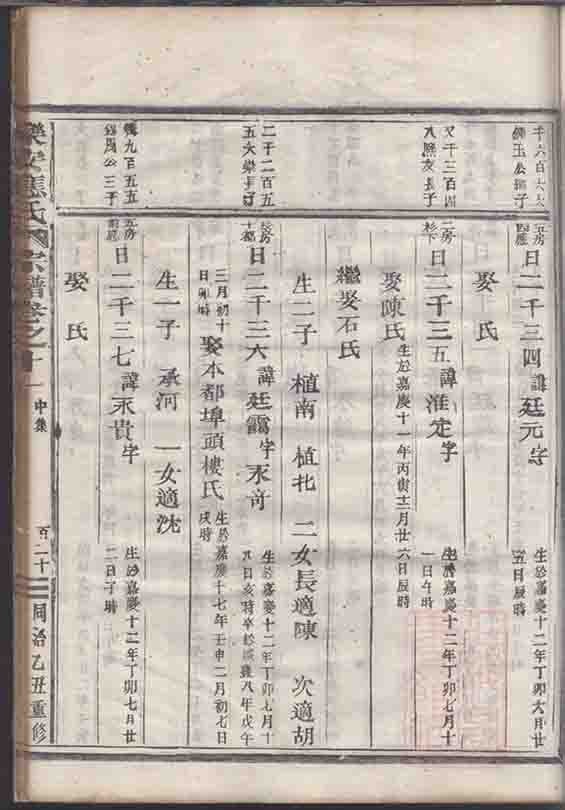 千六百六六
五房
曰二千三四諱廷元字
生於嘉慶十二年丁卯六月廿
五日辰時
娶 氏
又千三百四
八 友長子
二房
杉下
曰二千三五諱淮定字
生於嘉慶十二年丁卯七月十
一日午時
娶陳氏
生於嘉慶十一年丙寅十二月廿
六日辰時
繼娶石氏
生二子 植南 植北 二女長適陳 次適胡
二千二百五
五 樂長子
曰二千三六諱廷靄字永奇
生於嘉慶十二年丁卯七月十
八日亥時卒於咸豐八年戊午
三月初十
日卯時
娶本都埠頭樓氏
生於嘉慶十七年壬申二月初七日
戌時
生一子 承河 一女適沈
九百五五
公三子
五房
曰二千三七諱永貴字
生於嘉慶十二年丁卯七月廿
二日子時
娶 氏
樂安應氏宗譜卷之十一 中集 百二十 同治乙丑重修